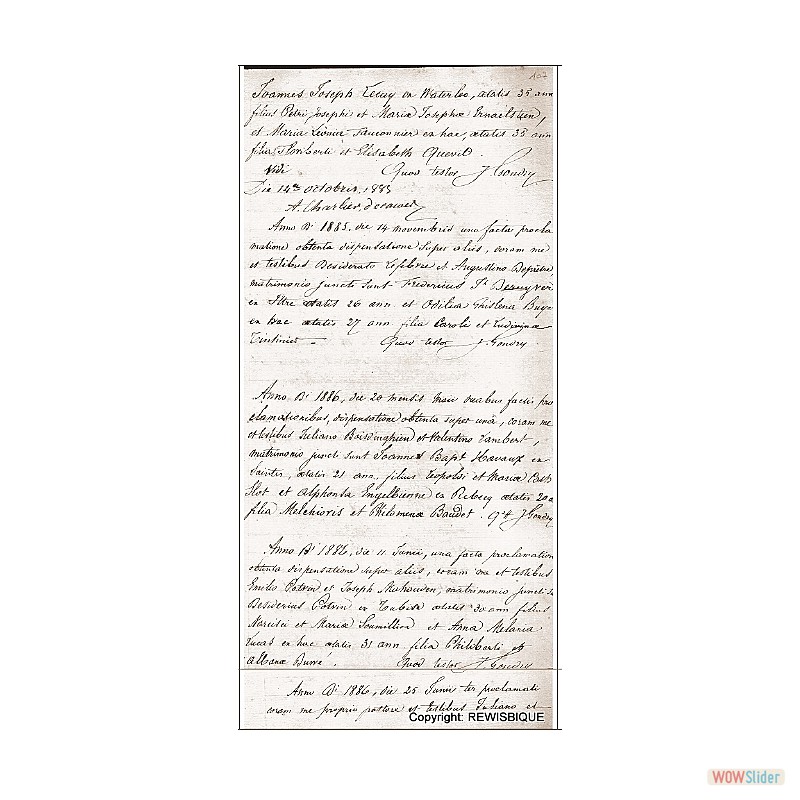 107
Joannes Joseph Lecuy ex Waterloo, ætatis 35 ann
filius Petri Josephi et Mariæ Josephæ
et Maria Léonie Fauconnier ex hac, ætatis 35 ann
filia Floriberti et Elisabeth
Vidi Quod testor J Goudry
Die 14â octobris 1885
A. Charlier, decanus
Anno Dⁱ 1885, die 14 novembris una facta procla
matione obtenta dispensatione super aliis, coram me
et testibus Desiderato Lefebvre et Augustino
matrimonio juncti sunt Fredericus Jh
ex Ittre ætatis 26 ann. et Odilia Ghislena
ex hac ætatis 27 ann. filia Caroli et
Quod testor J. Goudry
Anno Dⁱ 1886, die 20 mensis maii duabus factis pro
clamationibus, dispensatione obtenta super unâ, coram me
et testibus Juliano Boisdinghien et Valentino Lambert,
matrimonio juncti sunt Joannes Bapt Havaux ex
Saintes, ætatis 21 ann, filius Leopoldi et Mariæ Cath
et Alphonsa Engelbienne ex Rebecq ætatis 20 a
filia Melchioris et Philomenæ Baudot. J Goudry
Anno Dⁱ 1886, die 11 Junii, una facta proclamation
obtenta dispensatione super aliis, coram me et testibus
Emilio Potvin et Joseph matrimonio juncti s
Desiderius Potvin ex Tubise ætatis 30 ann filius
Narcisi et Mariæ Soumillion et Anna Melania
Lucas ex hac ætatis 31 ann filia Philiberti et
Albanæ Burré. Quod testor J Goudry
Anno Dⁱ 1886, die 25 Junii ter proclamati
coram me proprio pastore et testibus Juliano et
Copyright: REWISBIQUE
WOWSlider